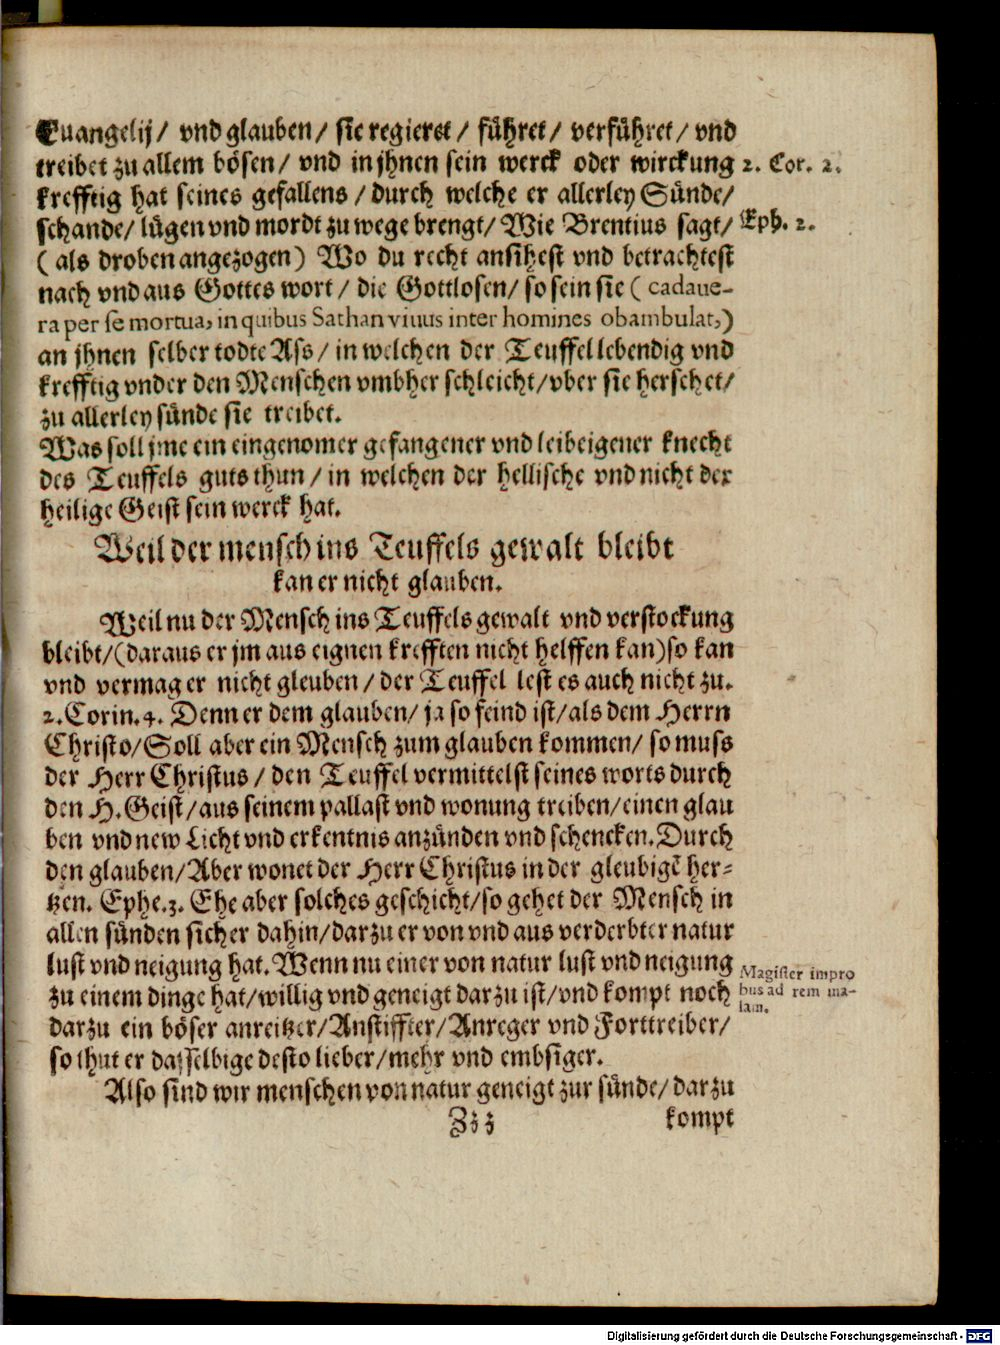 Euangelij/ vnd glauben/ sie regieret/ führet/ verführet/ vnd
treibet zu allem bösen/ vnd in jhnen sein werck oder wirckung
2. Cor. 2.
krefftig hat seines gefallens/ durch welche er allerley Sünde/
schande/ lügen vnd mordt zu wege brengt/ Wie Brentius sagt/
Eph. 2.
(als droben angezogen) Wo du recht ansihest vnd betrachtest
nach vnd aus Gottes wort/ die Gottlosen/ so sein sie (cadaue-
ra per se mortua, in quibus Sathan viuus inter homines obambulat,)
an jhnen selber todte Ass/ in welchen der Teuffel lebendig vnd
krefftig vnder den Menschen vmbher schleicht/ vber sie herschet/
zu allerley sünde sie treibet.
Was soll jme ein eingenomer gefangener vnd leibeigener knecht
des Teuffels guts thun/ in welchen der hellische vnd nicht der
heilige Geist sein werck hat.
Weil der mensch ins Teuffels gewalt bleibt
kan er nicht glauben.
Weil nu der Mensch ins Teuffels gewalt vnd verstockung
bleibt/ (daraus er jm aus eignen krefften nicht helffen kan) so kan
vnd vermag er nicht gleuben/ der Teuffel lest es auch nicht zu.
2. Corin. 4. Denn er dem glauben/ ja so feind ist/ als dem Herrn
Christo/ Soll aber ein Mensch zum glauben kommen/ so muss
der Herr Christus/ den Teuffel vermittelst seines worts durch
den H. Geist/ aus seinem pallast vnd wonung treiben/ einen glau
ben vnd new Licht vnd erkentnis anzünden vnd schencken. Durch
den glauben/ Aber wonet der Herr Christus in der gleubigē her-
tzen. Ephe. 3. Ehe aber solches geschicht/ so gehet der Mensch in
allen sünden sicher dahin/ darzu er von vnd aus verderbter natur
lust vnd neigung hat. Wenn nu einer von natur lust vnd neigung
zu einem dinge hat/ willig vnd geneigt darzu ist/ vnd kompt noch
Magister impro
bus ad rem ma-
lam.
darzu ein böser anreitzer/ Anstiffter/ Anreger vnd Forttreiber/
so thut er dasselbige desto lieber/ mehr vnd embsiger.
Also sind wir menschen von natur geneigt zur sünde/ darzu
Zzz
kompt
Digitalisierung gefördert durch die Deutsche Forschungsgemeinschaft - DFG